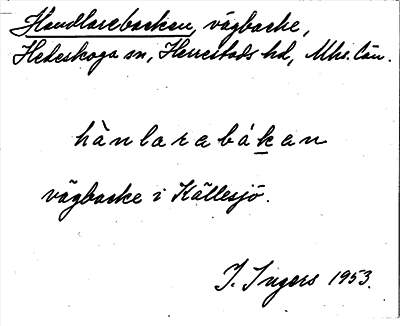 Handlarebacken, vägbacke,
Hedeskoga sn, Herrestads hd, Mhs. län.
hànlarebákan
vägbacke i Källesjö.
I. Ingers 1953.